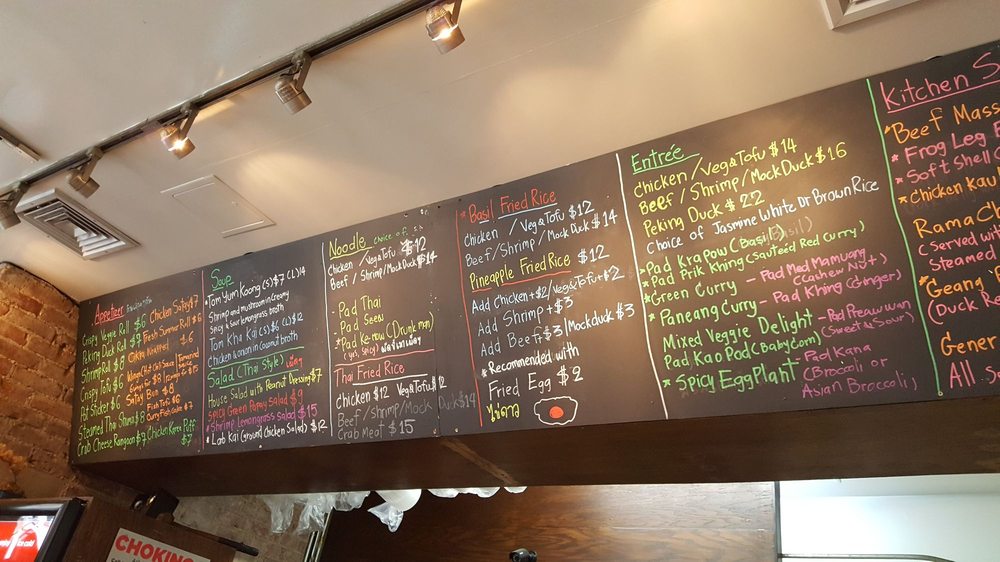 Appetizer
Crispy Veggie Roll $6
Peking Duck Roll $9
Shrimp Roll $8
Crispy Tofu $6
Pot Sticker $6
Steamed Thai
Crab Cheese Rangoon $7
Chicken Satay $7
Fresh Summer Roll $6
Curry Fish Cake $7
Chicken Karee Puff
$7
Soup
*Tom Yum Koong (S) $7 (L) 14
Shrimp and mushroom in Creamy
Spicy & Sour lemongrass broth
Tom Kha Kai (S) $6 (L) $12
Chicken & onion in Coconut broth
Salad (Thai Style)
House Salad with Peanut Dressing $7
Spicy Green Papaya Salad $9
*Shrimp Lemongrass Salad $15
*Lab Kai (Ground Chicken Salad) $12
Noodle choice of
Chicken / Veg&Tofu $12
Beef / Shrimp / Mock Duck $14
- Pad Thai
- Pad Seew
- Pad Ke-now (Drunk man)
(yes, spicy)
Thai Fried Rice
Chicken $12 Veg&Tofu $12
Beef/Shrimp/Mock Duck $14
Crab Meat $15
*Basil Fried Rice
Chicken / Veg&Tofu $12
Beef/Shrimp/Mock Duck $14
Pineapple Fried Rice $12
Add Chicken +$2/Veg&Tofu+$2
Add Shrimp+$3
Add Beef+$3/Mock duck $3
*Recommended with
Fried Egg $2
ไข่ดาว
Entrée
Chicken / Veg&Tofu $14
Beef / Shrimp / Mock Duck $16
Peking Duck $22
Choice of Jasmine White or Brown Rice
*Pad Krapow (Basil)
*Pad Prik Khing (Sauteed Red Curry)
*Green Curry
*Panang Curry
Mixed Veggie Delight
Pad Kao Pod (Baby Corn)
*Spicy EggPlant
- Pad Med Mamuang
(Cashew Nut)
- Pad Khing (Ginger)
- Pad Preawwan
(Sweet & Sour)
- Pad Kana
(Broccoli or
Asian Broccoli)
Kitchen S
*Beef Mass
*Frog Leg
*Soft Shell
*Chicken
Rama
(Served with
Steamed
*Geang
(Duck
Gener
All
CHOKING